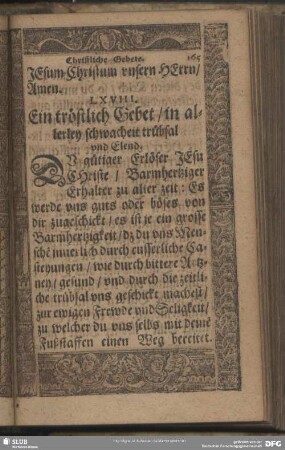 Christliche Gebete. 165
JEsum Christum vnsern HErrn/
Amen.
LXVIII.
Ein tröstlich Gebet/ in al-
lerley schwacheit trübsal
vnd Elend.
DV gütiger Erlöser JEsu
CHriste/ Barmhertziger
Erhalter zu aller zeit: Es
werde vns guts oder böses von
dir zugeschickt/ es ist je ein grosse
Barmhertzigkeit/ dz du vns Men-
schē innerlich durch eusserliche Ca-
steyungen/ wie durch bittere Artz-
ney/ gesund/ vnd durch die zeitli-
che trübsal vns geschickt machest/
zur ewigen Frewde vnd Seligkeit/
zu welcher du vns selbs mit deinē
Fußstaffen einen Weg bereitet.
SLUB
DFG